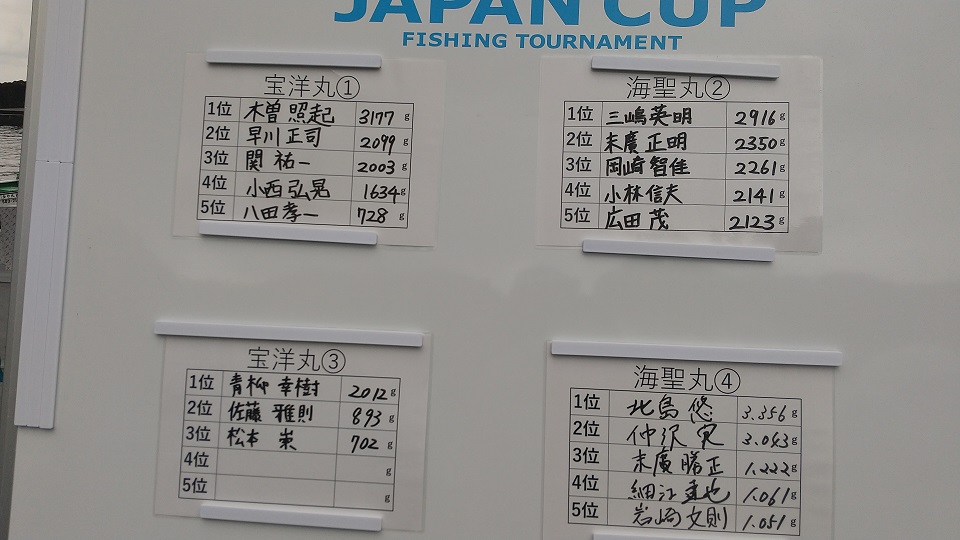 JAPAN CUP
FISHING TOURNAMENT
宝洋丸①
1位 木曽 照起 3177 g
2位 早川 正司 2099 g
3位 関 祐一 2003 g
4位 小西 弘晃 1634 g
5位 八田孝一 728 g
海聖丸②
1位 三嶋英明 2916 g
2位 末廣正明 2350 g
3位 岡崎智佳 2261 g
4位 小林信夫 2141 g
5位 広田茂 2123 g
宝洋丸③
1位 青柳 幸樹 2012 g
2位 佐藤 雅則 893 g
3位 松本 崇 702 g
4位 g
5位 g
海聖丸④
1位 北島 悠 3.356 g
2位 仲沢 実 3.043 g
3位 末廣勝正 1.222 g
4位 細江 也 1.061 g
5位 岩崎文則 1.051 g